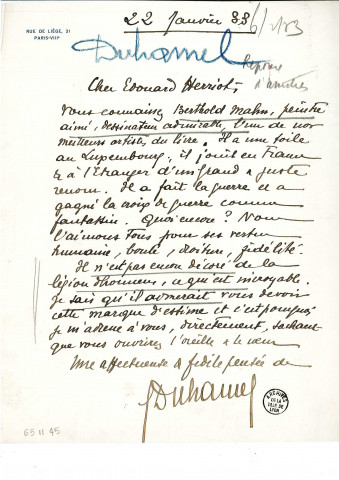 22 Janvier 33
6/183
RUE DE LIÈGE, 31
PARIS-VIIIe
Duhamel
Cher Edouard Herriot,
Vous connaissez Berthold Mahn, peintre
aimé, dessinateur admirable, l'un de nos
meilleurs artistes du livre. Il a une toile
au Luxembourg, il jouit en France
& à l'Etranger d'un grand & juste
renom. Il a fait la guerre et a
gagné la croix de guerre comme
fantassin. Quoi encore ? Nous
l'aimons tous pour ses vertus
humaines, bonté, droiture, fidélité.
Il n'est pas encore décoré de la
légion d'honneur, ce qui est incroyable.
Je sais qu'il aimerait vous devoir
cette marque d'estime et c'est pourquoi
je m'adresse à vous, directement, sachant
que vous ouvrirez l'oreille & le cœur
Une affectueuse & fidèle pensée de
GDuhamel
ARCHIVES
DE LA
VILLE DE
LYON
65 II 45